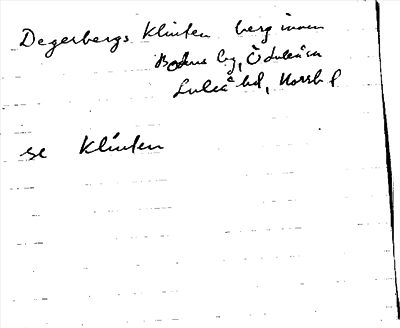 Degerbergs Klinten berg innom
Bodens by, Ö Luleå sn
Luleå hd, Norrb l
se Klinten